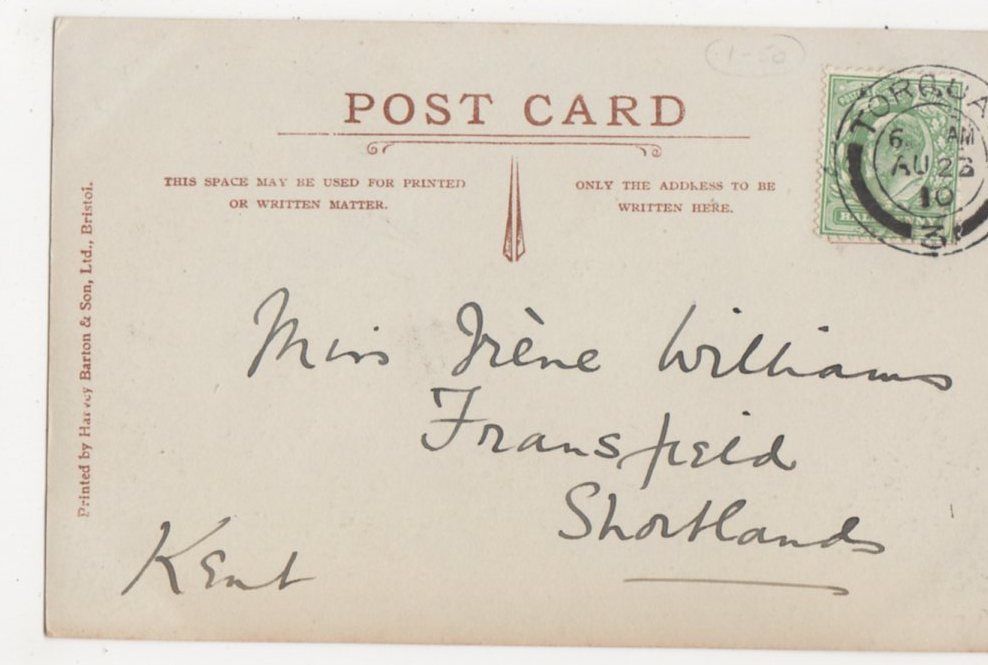 1-50
POST CARD
THIS SPACE MAY BE USED FOR PRINTED
OR WRITTEN MATTER.
ONLY THE ADDRESS TO BE
WRITTEN HERE.
TORQUA
AM
AU 23
10
HALF
Printed by Harvey Barton & Son, Ltd., Bristol.
Miss Irène Williams
Fransfield
Shortlands
Kent